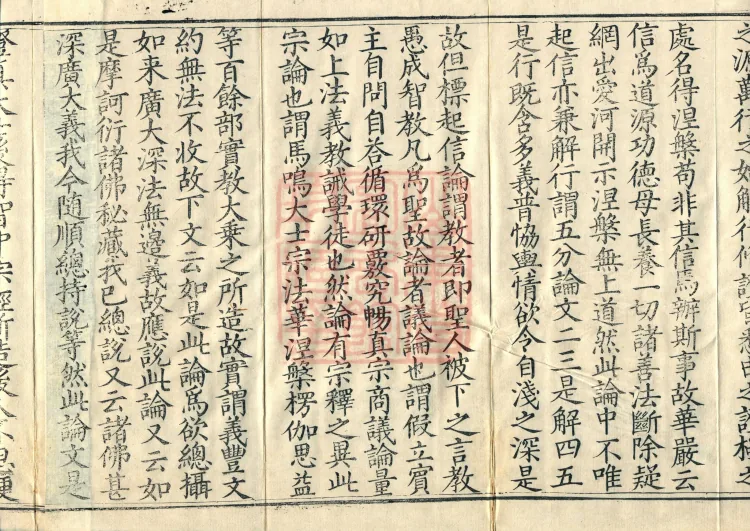 之源萬行之始解行
處名得涅槃苟非其信焉辦斯事故華嚴云
信爲道源功德母長養一切諸善法斷除疑
網出愛河開示涅槃無上道然此論中不唯
起信亦兼解行謂五分論文二三是解四五
是行既含多義普恊輿情欲令自淺之深是
故但標起信論謂教者即聖人被下之言教
愚成智教凡爲聖故論者議論也謂假立賓
主自問自荅循環研覈究暢真宗商議論量
如上法義教誡學徒也然論有宗釋之異此
宗論也謂馬鳴大士宗法華涅槃楞伽思益
等百餘部實教大乗之所造故實謂義豐文
約無法不收故下文云如是此論爲欲總攝
如来廣大深法無邊義故應說此論又云如
是摩訶衍諸佛秘藏我已總說又云諸佛甚
深廣大義我今随順總持說等然此論文是